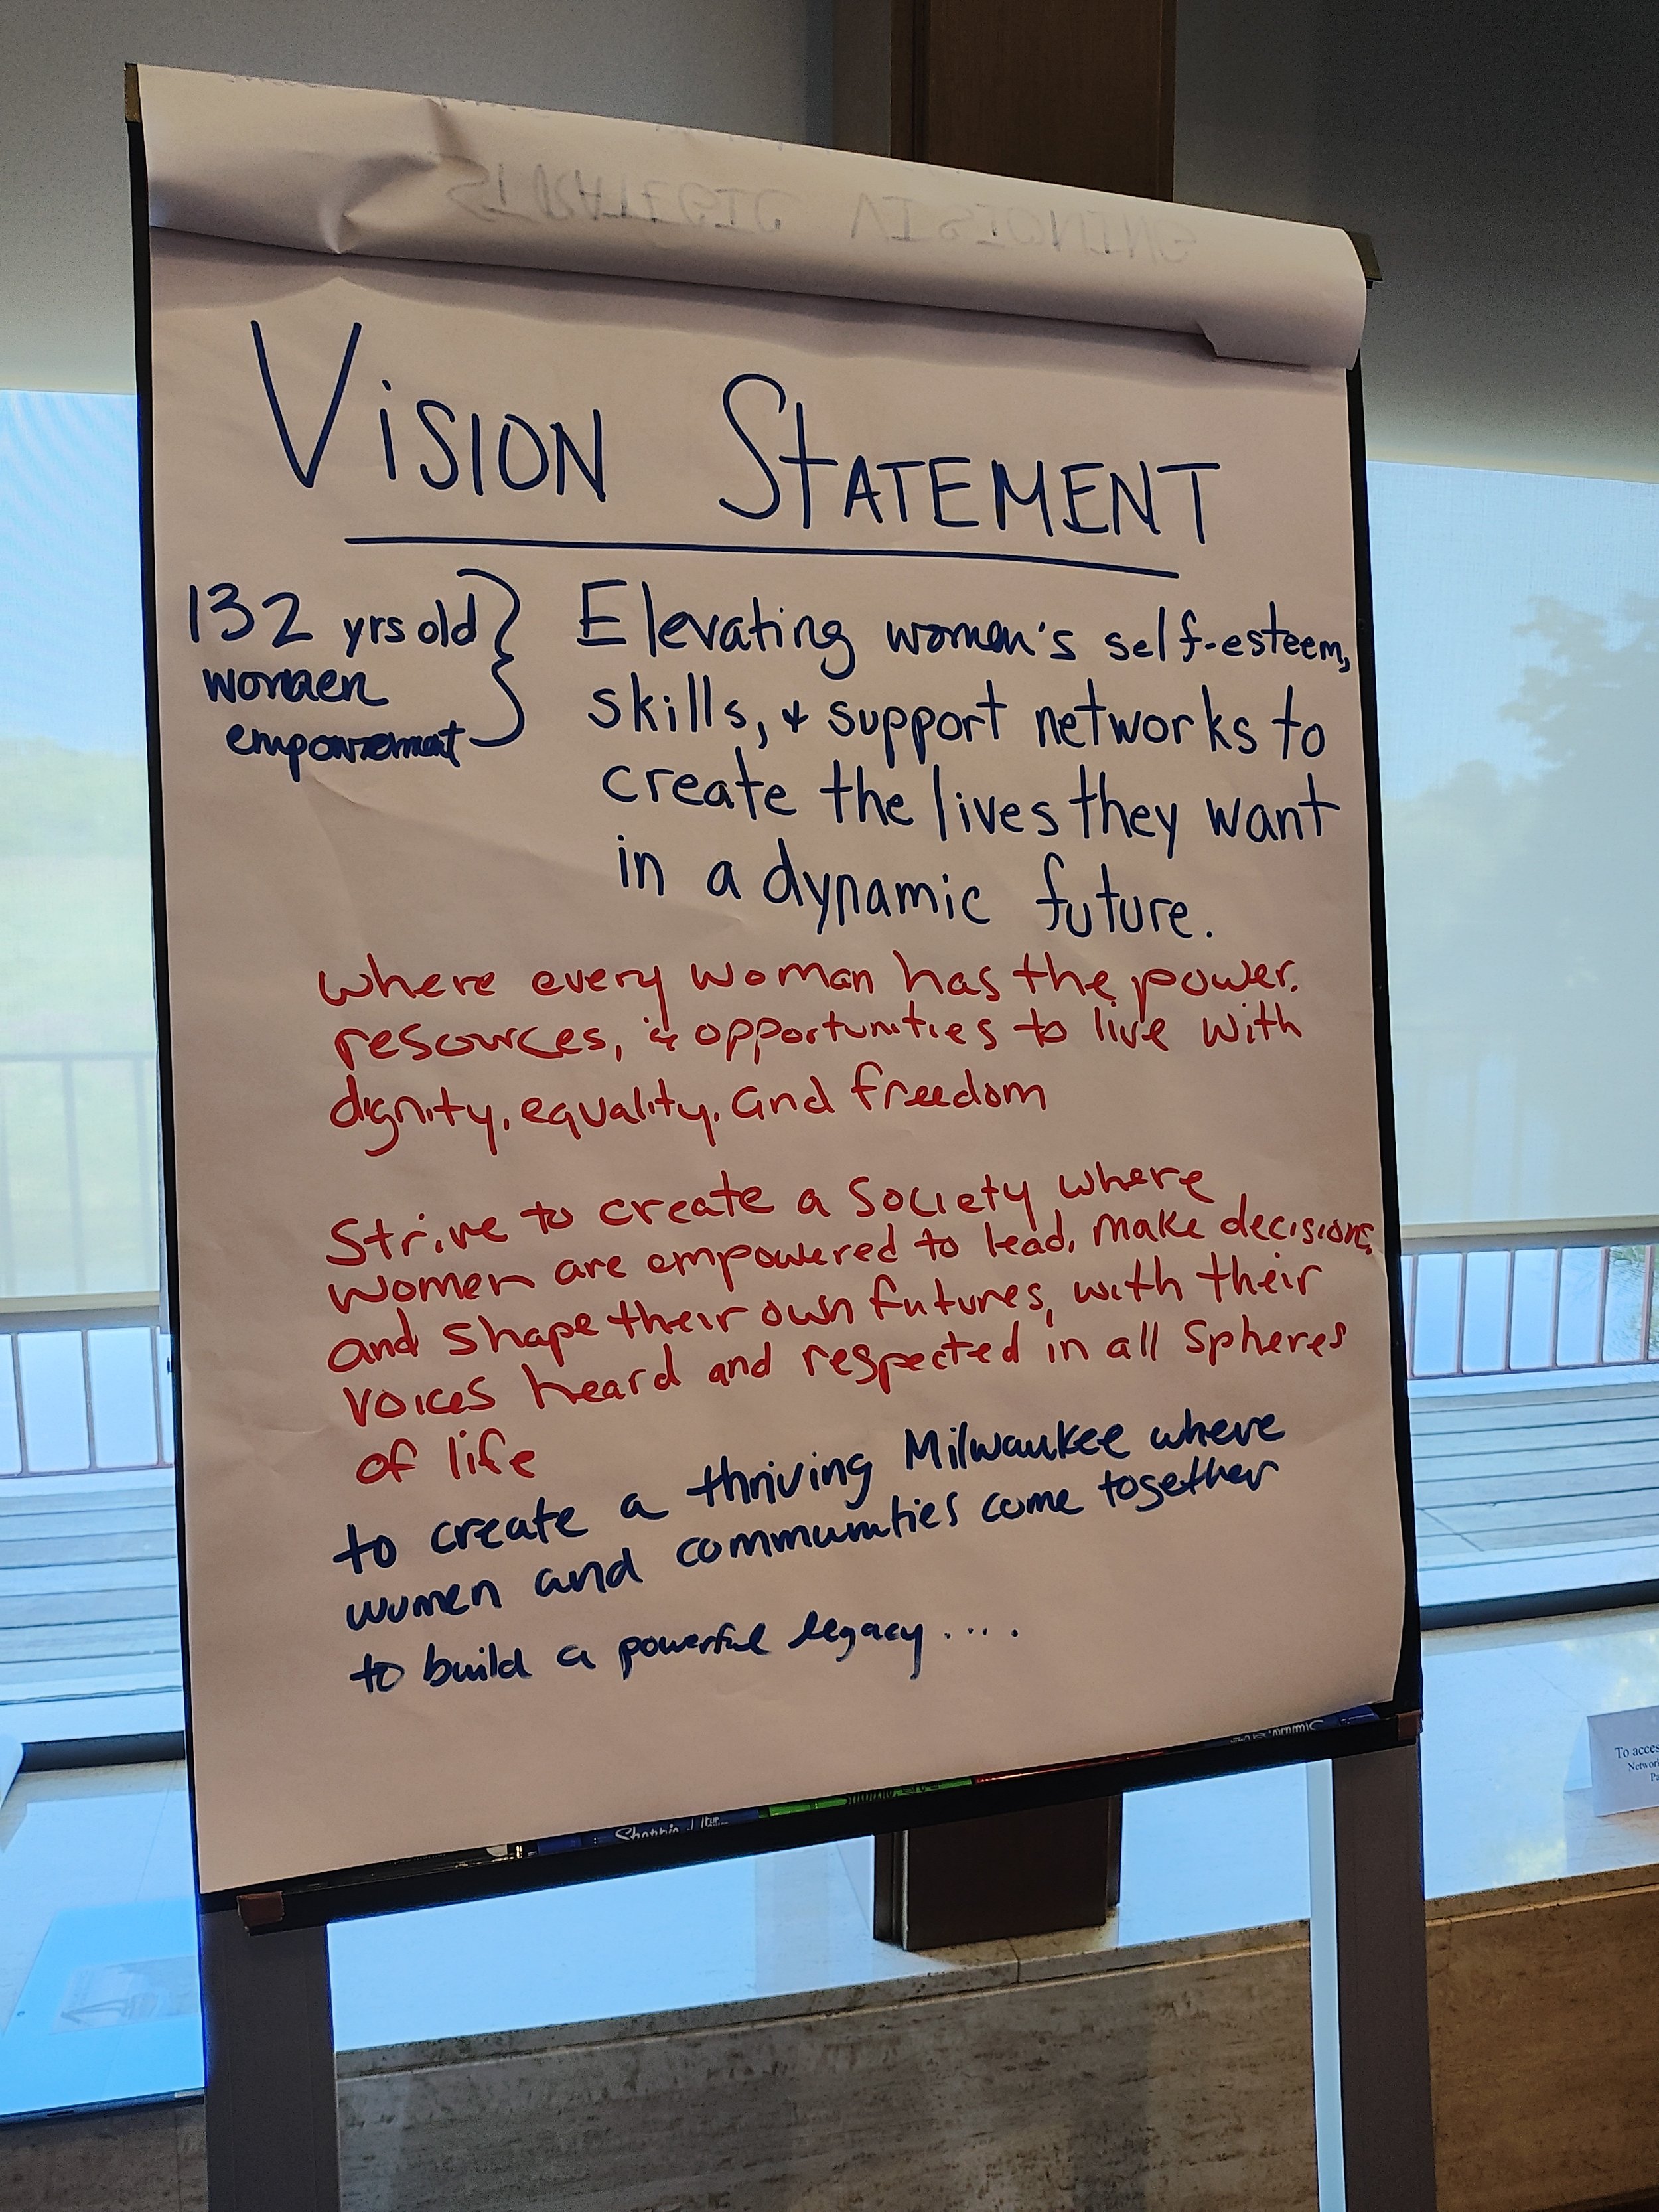 STRATEGIC VISIONING
VISION STATEMENT
132 yrs old
women
empowerment
Elevating women's self-esteem,
skills, & support networks to
create the lives they want
in a dynamic future.
where every woman has the power,
resources, & opportunities to live with
dignity, equality, and freedom
Strive to create a society where
women are empowered to lead, make decisions,
and shape their own futures, with their
voices heard and respected in all spheres
of life
to create a thriving Milwaukee where
women and communities come together
to build a powerful legacy....
Sharpie
To access
Network